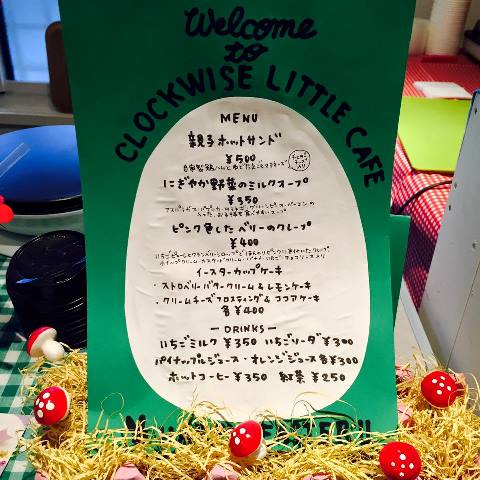 Welcome
to
CLOCKWISE LITTLE CAFE
MENU
親子ホットサンド
¥500
にぎやか野菜のミルクスープ
¥350
ピンク色したベリーのクレープ
¥400
イースターカップケーキ
・ストロベリーバタークリーム&レモンケーキ
・クリームチーズフロスティング&ココアケーキ
各¥400
—DRINKS—
いちごミルク ¥350 いちごソーダ ¥300
パイナップルジュース・オレンジジュース 各¥300
ホットコーヒー ¥350 紅茶 ¥250